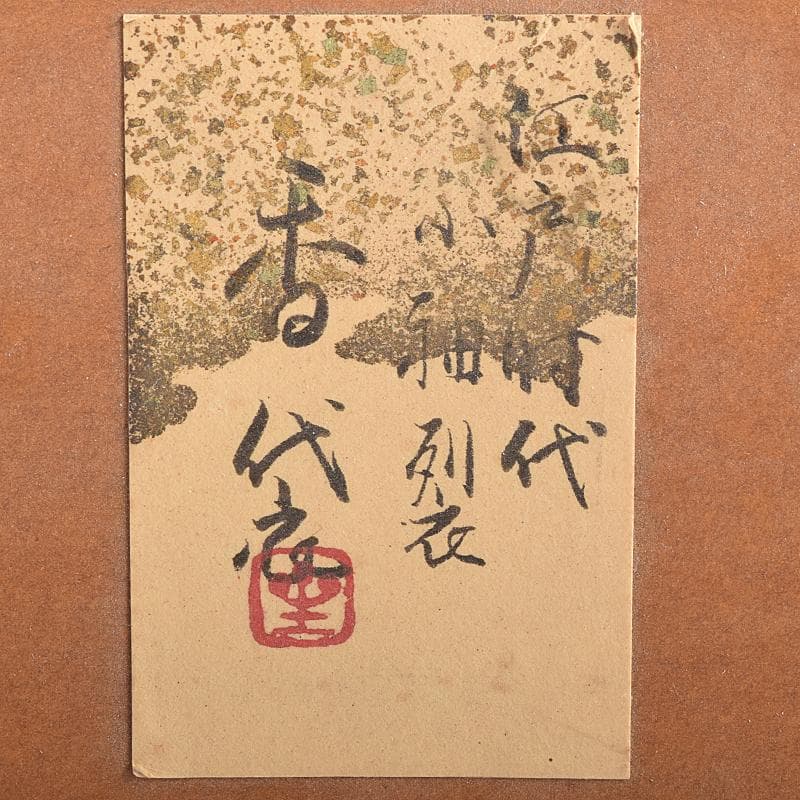 江戸時代
小袖裂
香代